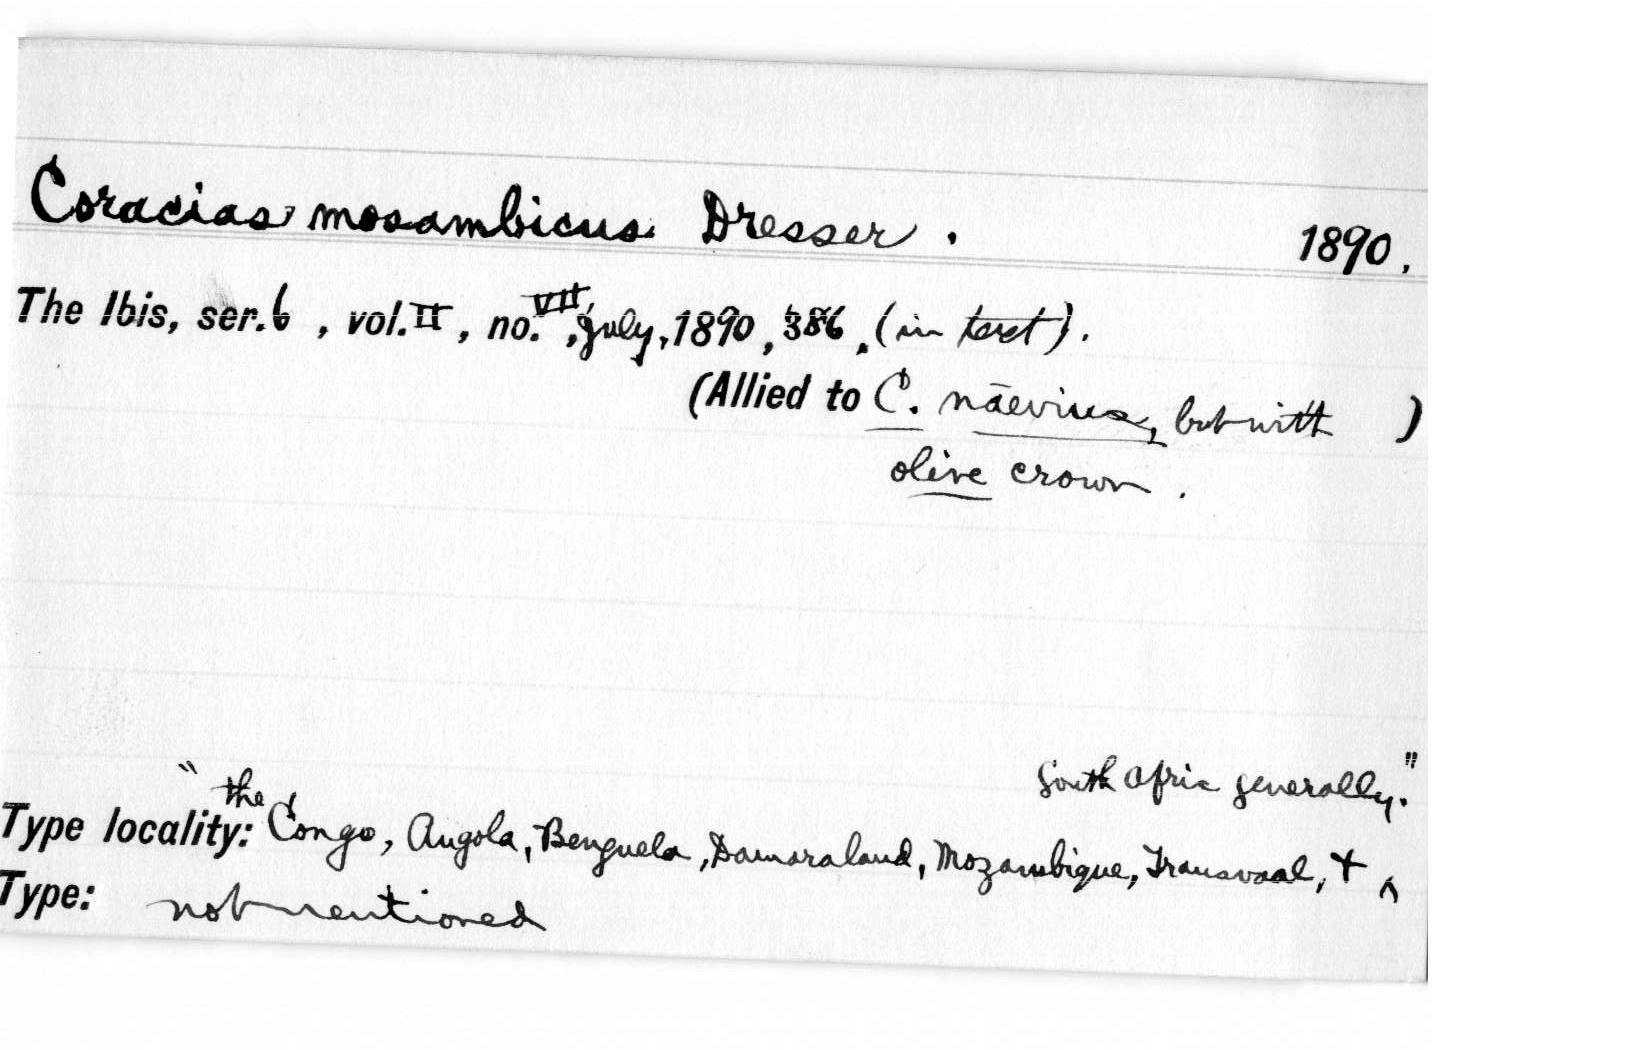 Coracias mosambicus Dresser. 1890.
The Ibis, ser. 6, vol. II, no. VII, July, 1890, 386, (in text).
(Allied to C. nāevius, but with )
olive crown.
South Afric generally."
Type locality: "the Congo, Angola, Benguela, Damaraland, Mozambique, Transvaal, + ^
Type: not mentioned